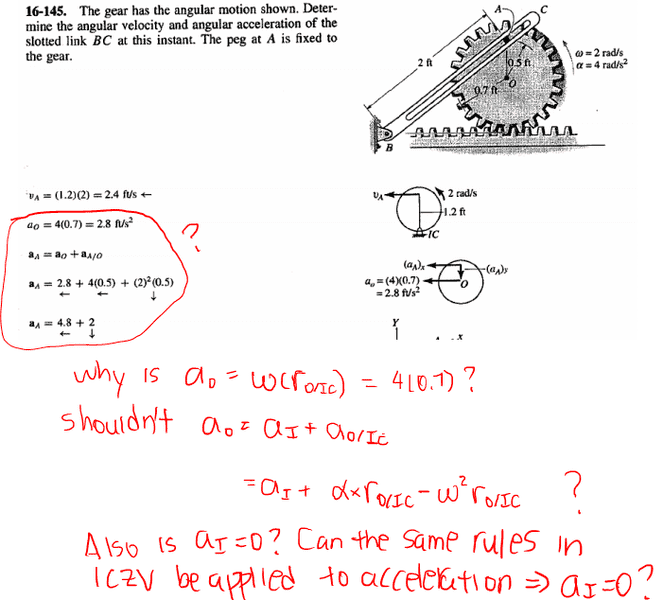 16-145. The gear has the angular motion shown. Deter-
mine the angular velocity and angular acceleration of the
slotted link BC at this instant. The peg at A is fixed to
the gear.
A
C
2 ft
0.5 ft
0.7 ft
O
B
ω = 2 rad/s
α = 4 rad/s²
v_A = (1.2)(2) = 2.4 ft/s ←
a_O = 4(0.7) = 2.8 ft/s²
a_A = a_O + a_A/O
a_A = 2.8 + 4(0.5) + (2)²(0.5)
← ← ↓
a_A = 4.8 + 2
← ↓
?
v_A
2 rad/s
1.2 ft
IC
(a_A)x
(a_A)y
a_o = (4)(0.7)
= 2.8 ft/s²
O
Y
x
why is a_o = ω(r_o/IC) = 4(0.7)?
shouldn't a_o = a_I + a_o/IC
= a_I + α×r_o/IC - ω² r_o/IC ?
Also is a_I = 0? Can the same rules in
ICZV be applied to acceleration ⇒ a_I = 0?